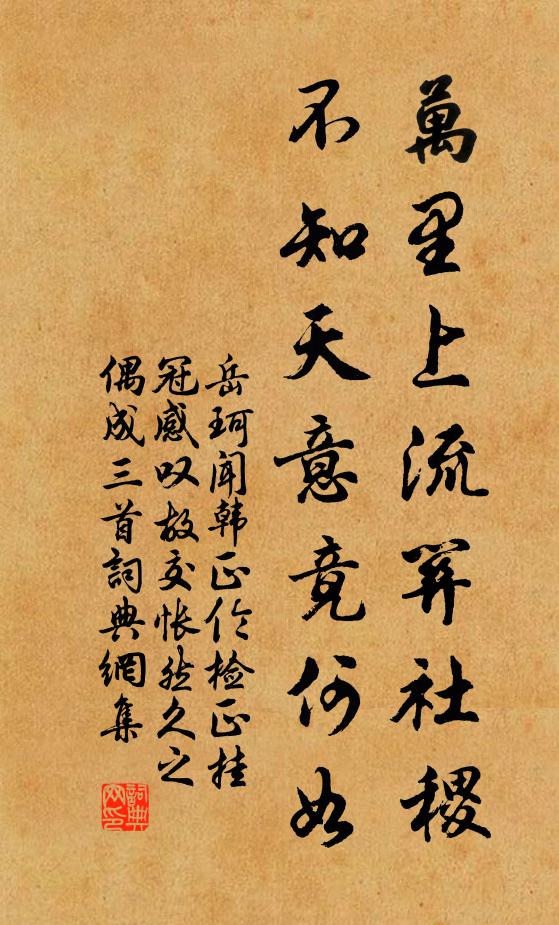 萬里上流關社稷
不知天意竟何如
岳珂闻韩正伦检正挂
冠感叹故交怅然久之
偶成三首詞典網集
詞典网印